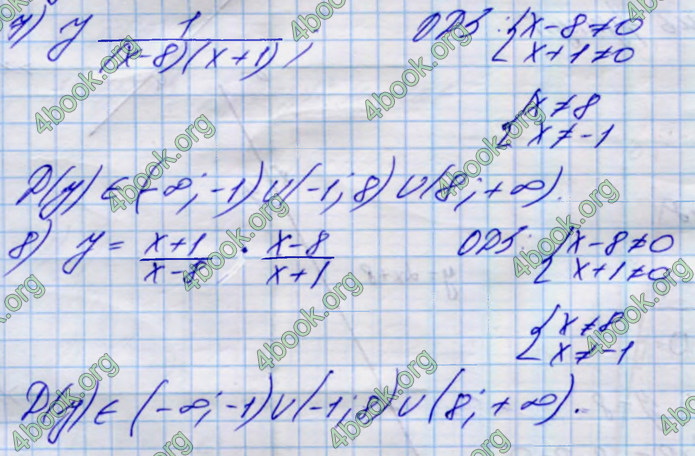 7) y 1/((x-8)(x+1)); ОДЗ: { x-8≠0
x+1≠0
{ x≠8
x≠-1
D(y) ∈ (-∞; -1) ∪ (-1; 8) ∪ (8; +∞).
8) y = (x+1)/(x-8) · (x-8)/(x+1) ОДЗ: { x-8≠0
x+1≠0
{ x≠8
x≠-1
D(y) ∈ (-∞; -1) ∪ (-1; 8) ∪ (8; +∞).
4book.org